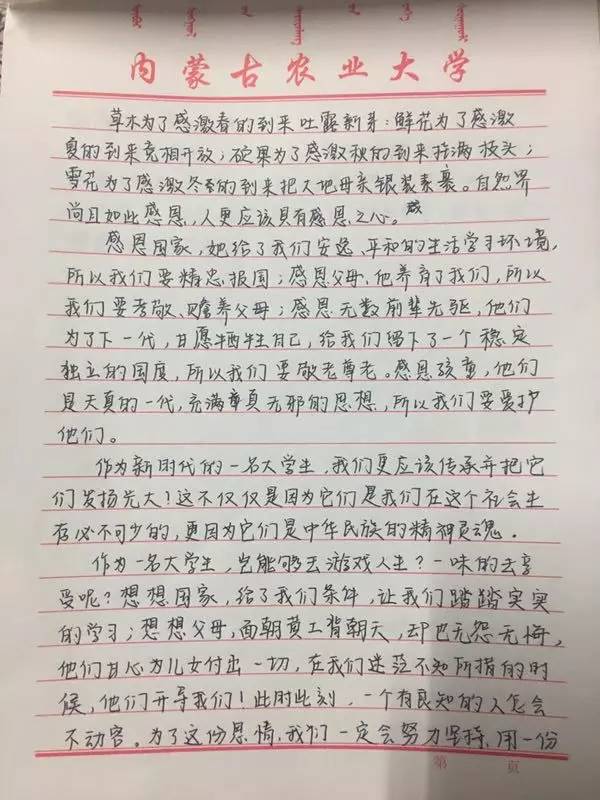 内蒙古农业大学
草木为了感激春的到来吐露新芽；鲜花为了感激
夏的到来竞相开放；硕果为了感激秋的到来挂满枝头；
雪花为了感激冬至的到来把大地母亲银装素裹。自然界
尚且如此感恩，人更应该具有感恩之心。感
感恩国家，她给了我们安逸、平和的生活学习环境，
所以我们要精忠报国；感恩父母，他养育了我们，所以
我们要孝敬、赡养父母；感恩无数前辈先驱，他们
为了下一代，甘愿牺牲自己，给我们留下了一个稳定
独立的国度，所以我们要敬老尊老。感恩孩童，他们
是天真的一代，充满童真无邪的思想，所以我们要爱护
他们。
作为新时代的一名大学生，我们更应该传承并把它
们发扬光大！这不仅仅是因为它们是我们在这个社会生
存必不可少的，更因为它们是中华民族的精神灵魂。
作为一名大学生，岂能够去游戏人生？一味的去享
受呢？想想国家，给了我们条件，让我们踏踏实实
的学习；想想父母，面朝黄土背朝天，却也无怨无悔，
他们甘心为儿女付出一切，在我们迷茫不知所措的时
候，他们开导我们！此时此刻，一个有良知的人怎会
不动容。为了这份恩情，我们一定会努力坚持，用一份
第 页